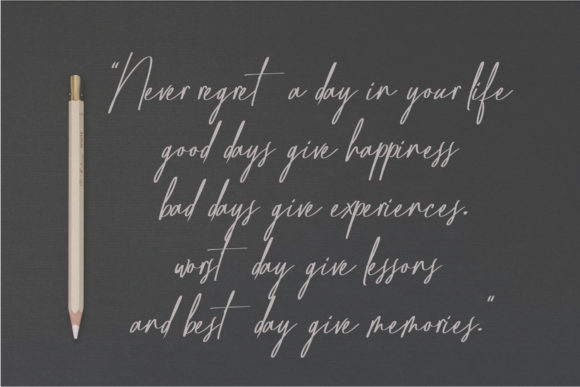 "Never regret a day in your life
good days give happiness
bad days give experiences.
worst day give lessons
and best day give memories."